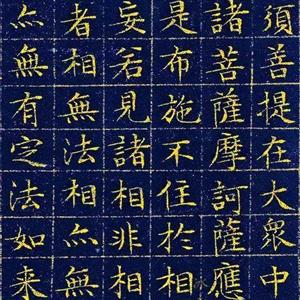 須善提在大眾中
諸菩薩摩訶薩應
是布施不住於相
妄若見諸相非相
者相無法相亦無
亦無有定法如来